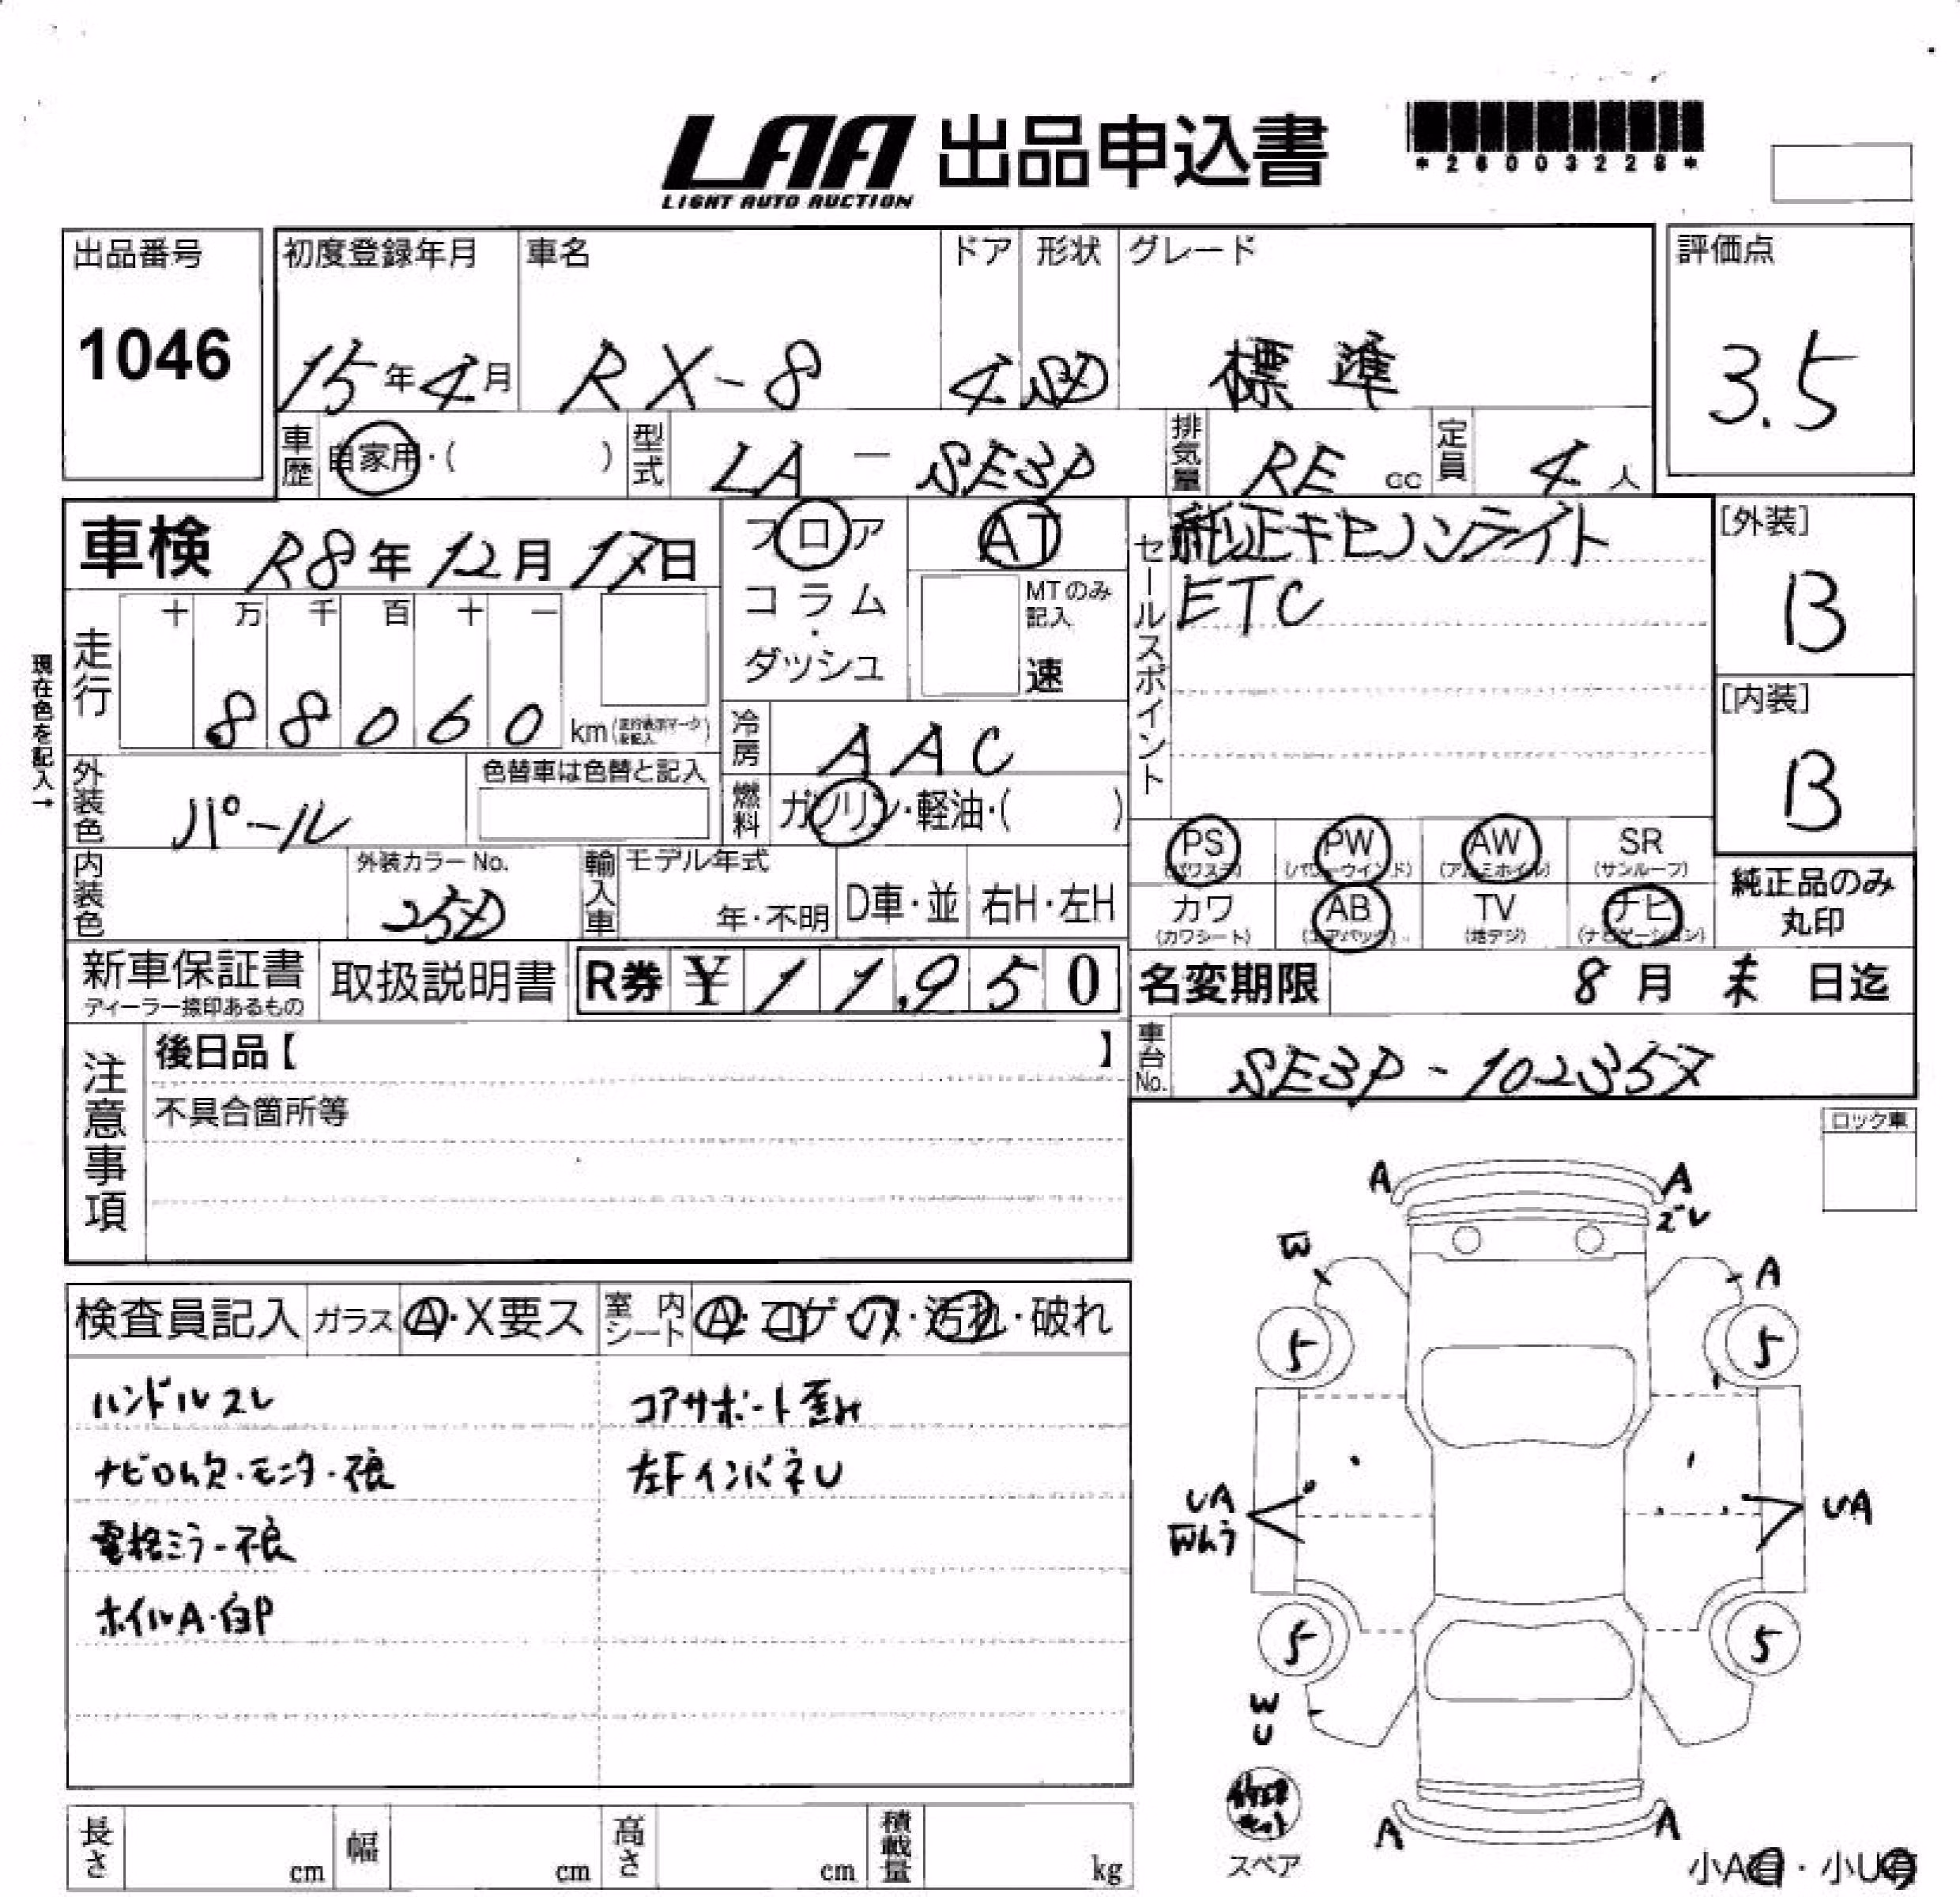 LAA 出品申込書
LIGHT AUTO AUCTION
*26003228*
出品番号
1046
初度登録年月
15年4月
車名
RX-8
ドア
4
形状
SD
グレード
標準
評価点
3.5
車歴 自家用・( )
型式 LA-SE3P
排気量 RE cc
定員 4人
車検 R8年12月17日
フロア
コラム
・
ダッシュ
AT
MTのみ
記入
速
セールスポイント
純正キセノンライト
ETC
[外装]
B
[内装]
B
現在色を記入→
走行
十 万 千 百 十 一
88060 km
冷房 AAC
燃料 ガソリン・軽油・( )
外装色 パール
色替車は色替と記入
内装色
外装カラーNo.
25D
輸入車
モデル年式
年・不明
D車・並
右H・左H
PS
(パワステ)
PW
(パワーウインド)
AW
(アルミホイル)
SR
(サンルーフ)
カワ
(カワシート)
AB
(エアバッグ)
TV
(地デジ)
ナビ
(ナビゲーション)
純正品のみ
丸印
新車保証書
ディーラー捺印あるもの
取扱説明書
R券 ¥11,950
名変期限 8月 末 日迄
車台No. SE3P-102357
注意事項
後日品【 】
不具合箇所等
ロック車
検査員記入
ガラス A・X要ス
室内シート A・コゲ・穴・汚れ・破れ
ハンドルスレ
ナビロム欠・モニター不良
電格ミラー不良
ホイルA・白P
コアサポート歪み
左FインパネU
A
A
ズレ
W
A
5
5
UA
Wムラ
UA
5
5
W
U
修理
キット
スペア
A
A
小A有・小U有
長さ cm
幅 cm
高さ cm
積載量 kg